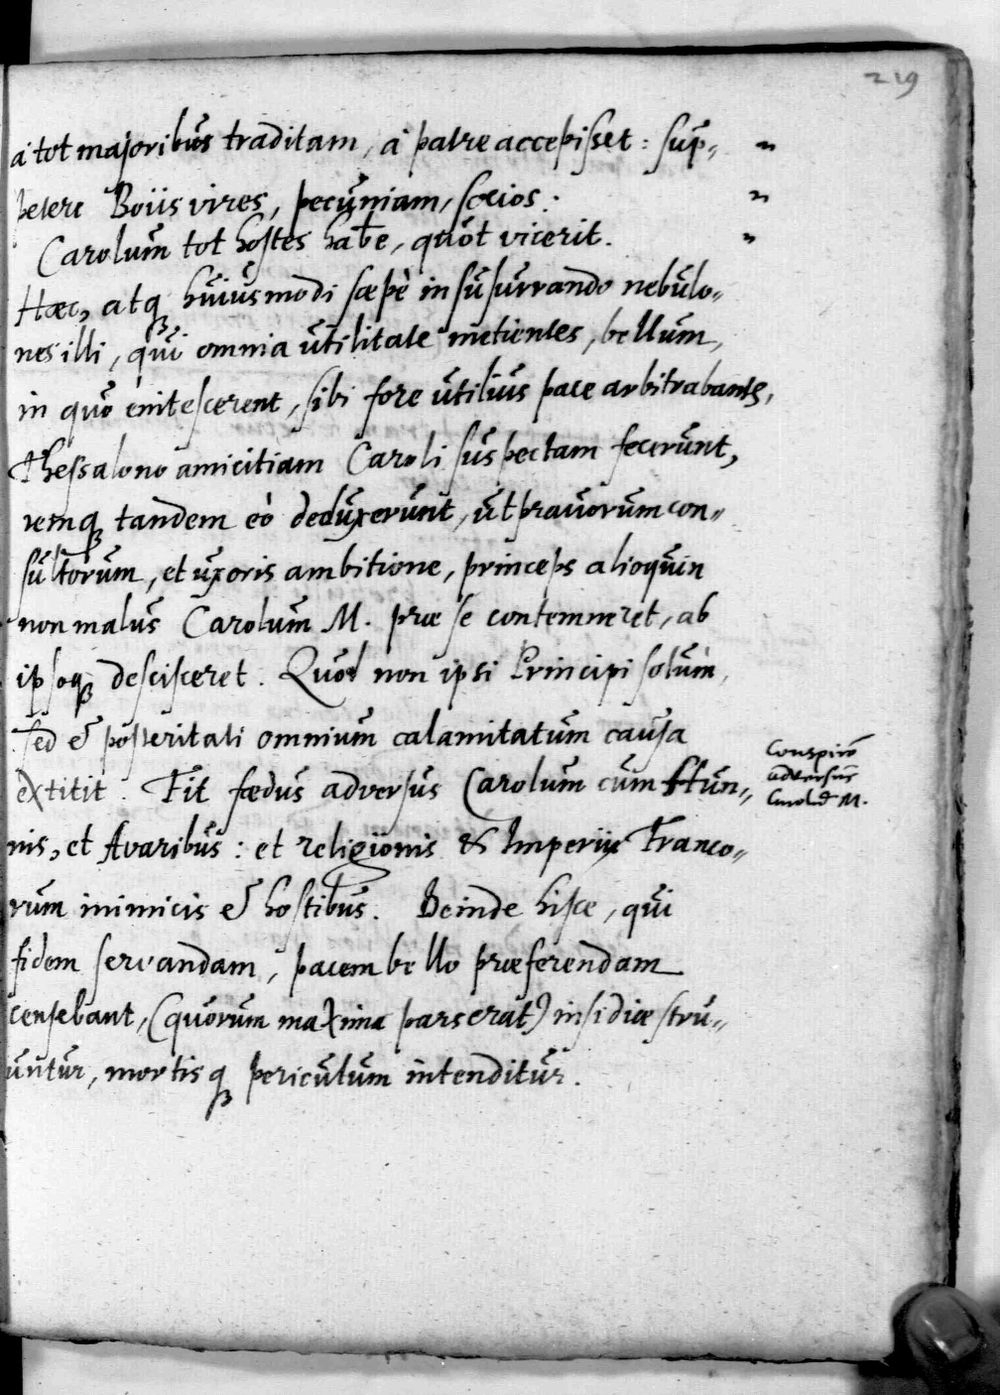 219
à tot majoribus traditam, à patre accepisset: sup„
petere Boiis vires, pecuniam, socios:
Carolum tot hostes habe, quot vicerit.
Hæc, atq huiusmodi sæpè insusurrando nebulo„
nes illi, qui omnia utilitate metientes, bellum,
in quo enitescerent, sibi fore utilius pace arbitrabants,
Thessalono amicitiam Caroli suspectam fecerunt,
remq tandem eò deduxerunt, ut pravorum con„
sultorum, et uxoris ambitione, princeps alioquin
non malus Carolum M. præ se contemneret, ab
ipsoq descisceret. Quod non ipsi Principi solùm,
sed & posteritati omnium calamitatum causa
extitit. Fit fœdus adversus Carolum cum Hun„
nis, et Avaribus: et religionis & Imperii Franco„
rum inimicis & hostibus. Deinde hisce, qui
fidem servandam, pacem bello præferendam
censebant, (quorum maxima pars erat) insidiæ stru„
untur, mortisq periculum intenditur.
Conspirõ
adversus
Carolũ M.